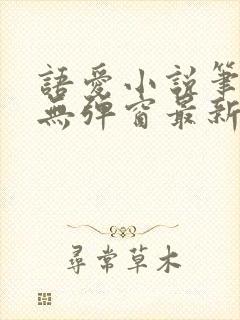 語愛小說筆
無彈窗最新
尋常草木